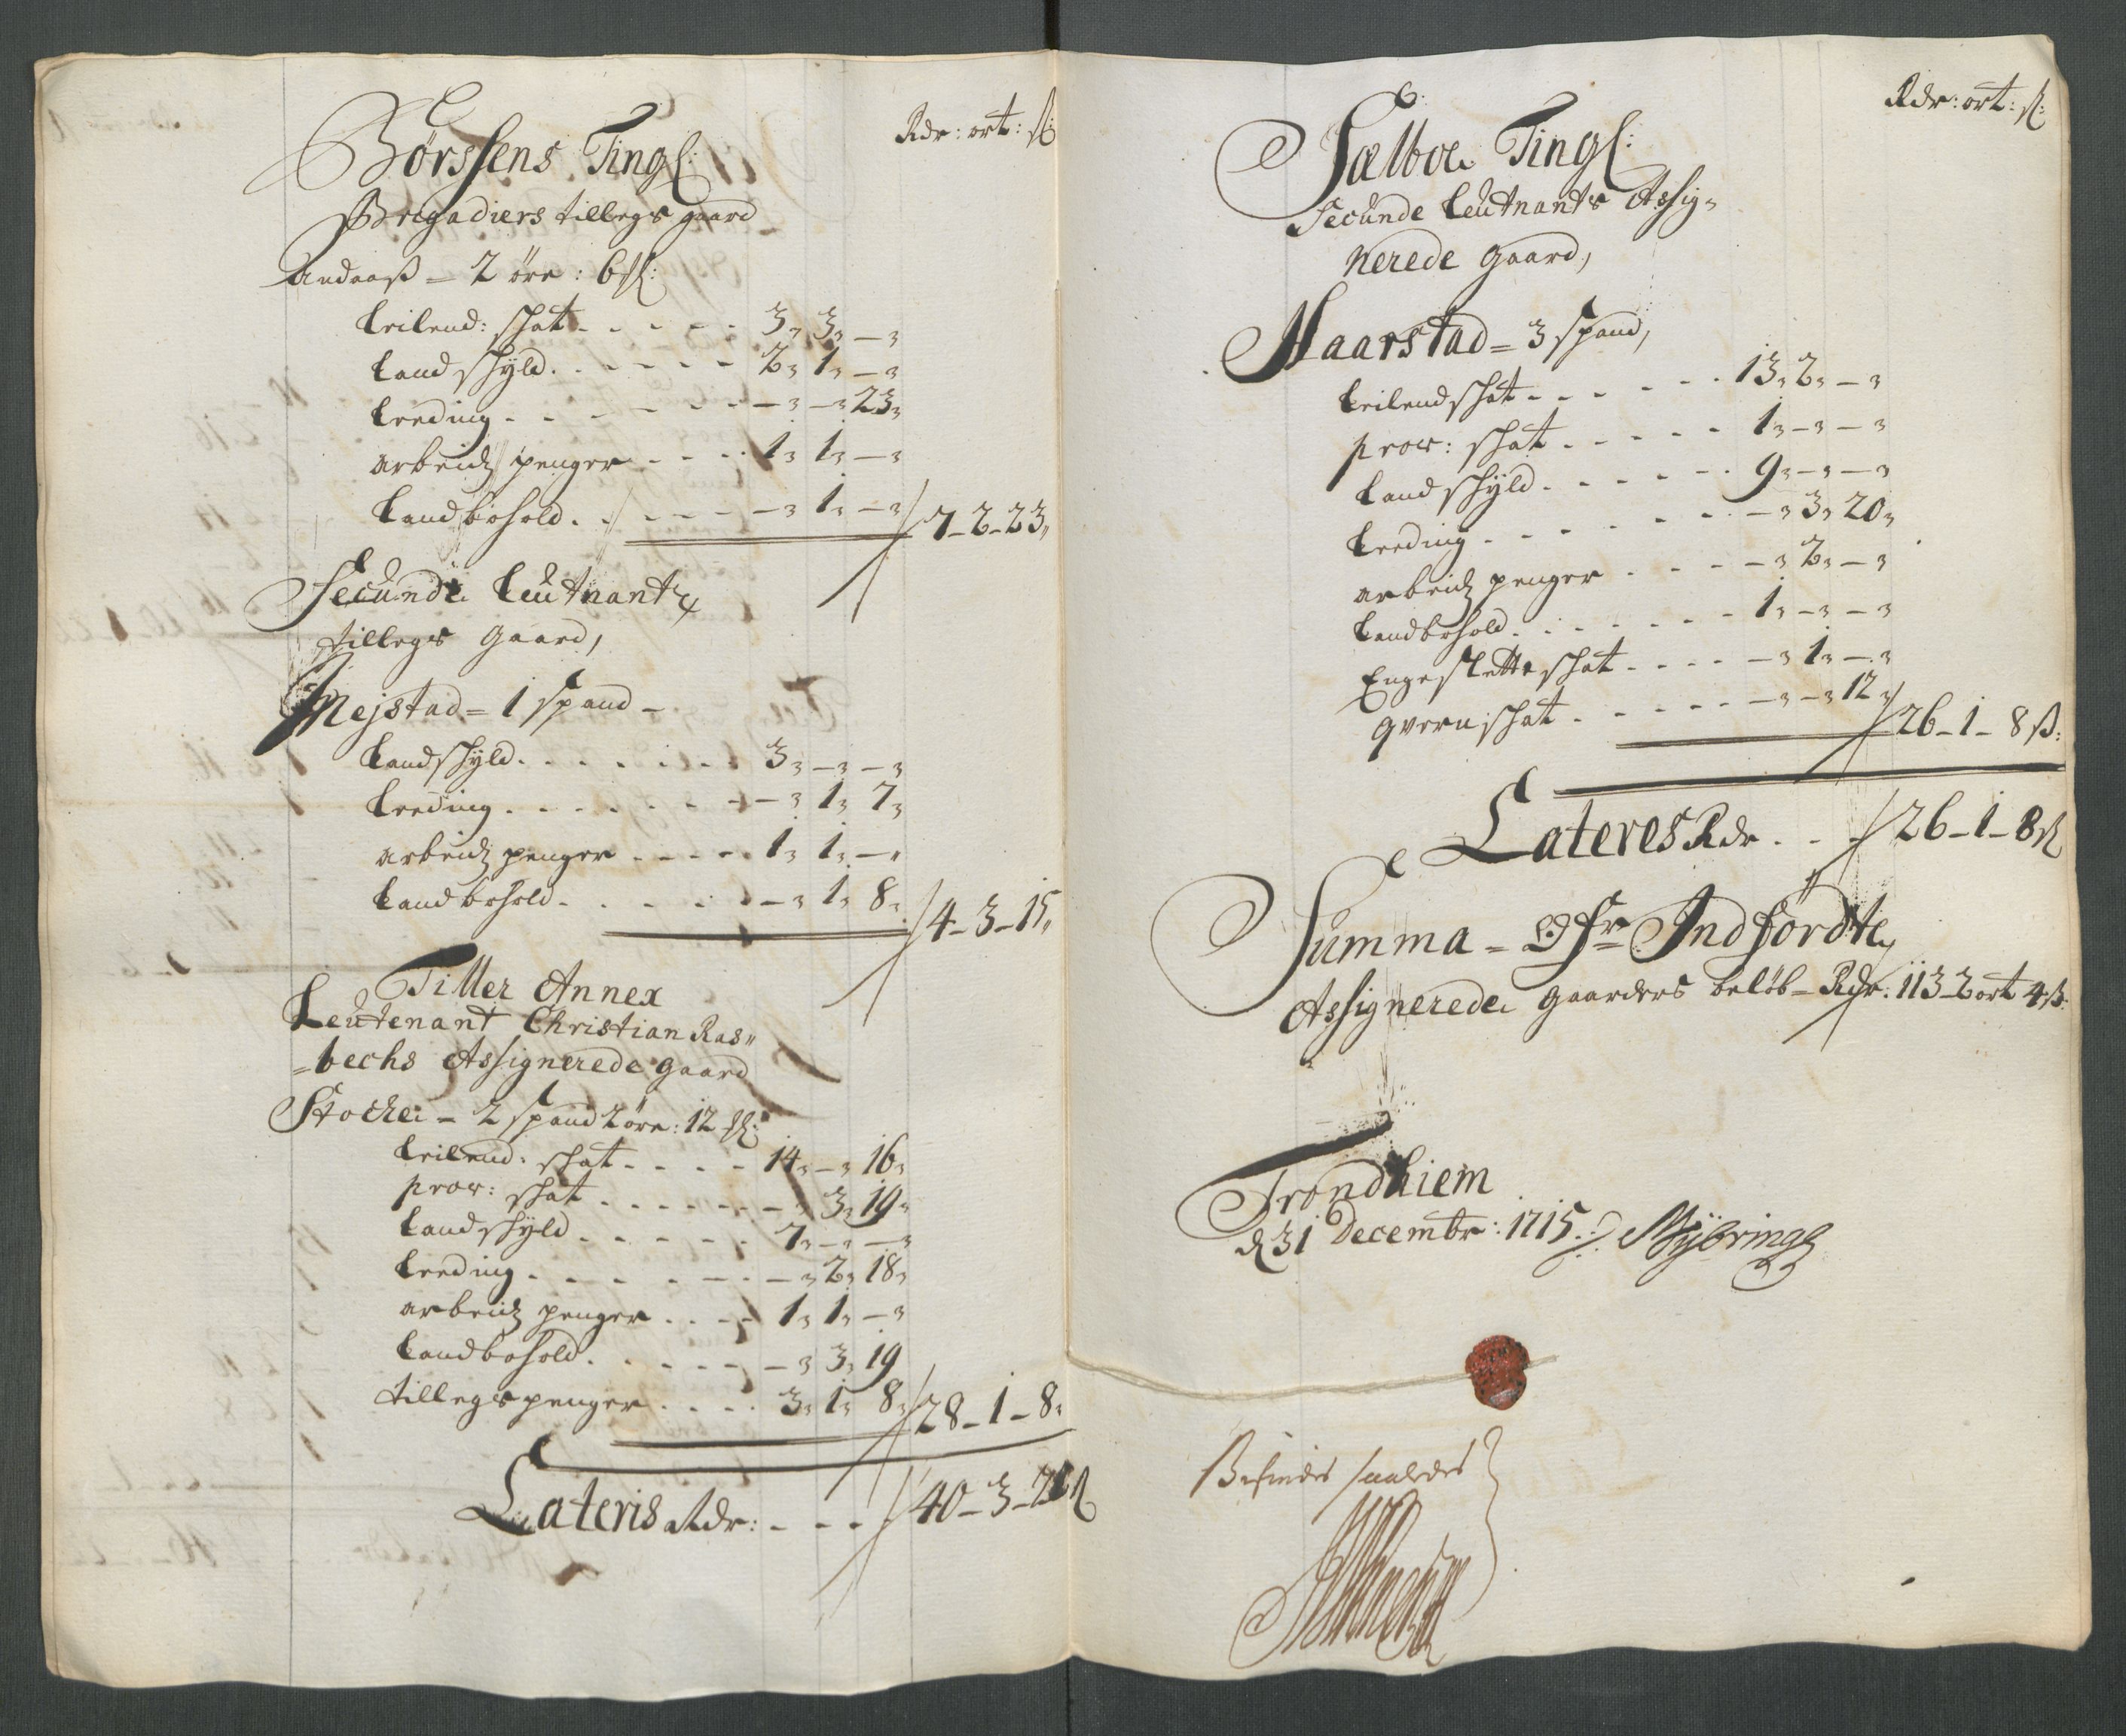 Rdr: ort: ß
Børssens Tingl:
Brigadiers tillegs gaard
Andaas = 2 øre: 6 ßl:
Leilend: schat - - - - - 3, 3, —,
Landschyld - - - - - 2, 1, —,
Leeding - - - - - —, —, 23,
arbeidz penger - - - - 1, 1, —,
Landbohold - - - - - —, 1, —,
7 - 2 - 23,
Secunde Leutnantz
tillegs Gaard,
Mejstad = 1 spand -
Landschyld - - - - - 3, —, —,
Leeding - - - - - —, 1, 7,
arbeidz penger - - - - 1, 1, —,
Landbohold - - - - - —, 1, 8,
4 - 3 - 15,
Tiller Annex
Leutenant Christian Ras=
=bechs Assignerede gaard
Stocke - 2 spand 2 øre: 12 ßl:
Leilend: schat - - - - 14, —, 16,
prow: schat - - - - - —, 3, 19,
Landschÿld - - - - - 7, —, —,
Leeding - - - - - —, 2, 18,
arbeidz penger - - - - 1, 1, —,
Landbohold - - - - - —, 3, 19
tillegs penger - - - - 3, 1, 8,
28 - 1 - 8,
Lateris Rdr: - - - 40 - 3 - 22 ß
Rdr: ort: ß:
Sælboe Tingl:
Secunde Leutnants Assig=
nerede Gaard,
Haarstad = 3 spand,
Leilendschat - - - - - 13, 2, —,
prow: schat - - - - - 1, —, —,
Landschÿld - - - - - 9, —, —,
Leeding - - - - - —, 3, 20,
arbeidz penger - - - - —, 2, —,
Landbohold - - - - - 1, —, —,
Engesletteschat - - - - —, 1, —,
Qvernschat - - - - - —, —, 12,
26 - 1 - 8 ß:
Lateres Rdr - - - 26 - 1 - 8 ß
Summa - Ofr Indførdte
Assignerede gaarders beløb - Rdr: 113 - 2 ort 4 ß:
Trondhiem
d 31 Decembr: 1715
Befindes saaledes